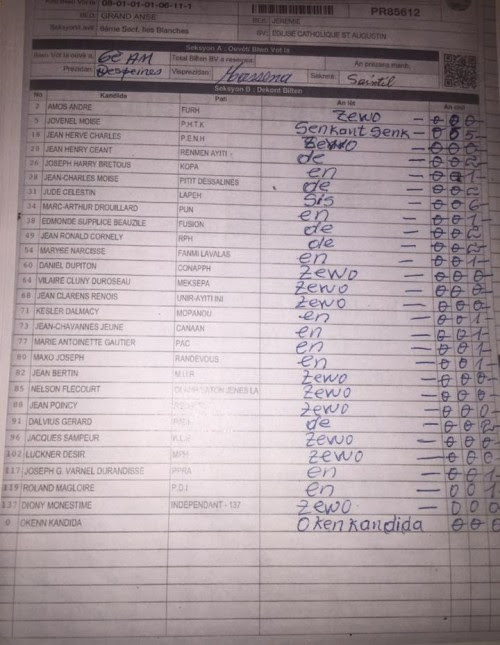 08-01-01-01-06-11-1
GRAND ANSE JEREMIE PR85612
8ème Sect. Iles Blanches BV: EGLISE CATHOLIQUE ST AUGUSTIN
Seksyon A : Devéti Biwo Vòt la
6e AM Total Bilten BV a resevwa An prezans manb
Prezidan Visprezidan Sekretè
Seksyon B : Dekont Bilten
No Kandida Pati An lèt An chif
2 AMOS ANDRE FURH zewo — 000
5 JOVENEL MOISE P.H.T.K Senkant Senk — 
18 JEAN HERVE CHARLES P.E.N.H zewo — 000
JEAN HENRY CEANT RENMEN AYITI - de — 002
26 JOSEPH HARRY BRETOUS KOPA en — 001
JEAN-CHARLES MOISE PITIT DESSALINES de — 002
31 JUDE CELESTIN LAPEH sis — 006
34 MARC-ARTHUR DROUILLARD PUN en — 001
38 EDMONDE SUPPLICE BEAUZILE FUSION de — 002
49 JEAN RONALD CORNELY RPH de — 002
54 MARYSE NARCISSE FANMI LAVALAS en — 001
60 DANIEL DUPITON CONAPPH zewo — 000
64 VILAIRE CLUNY DUROSEAU MEKSEPA zewo — 000
68 JEAN CLARENS RENOIS UNIR-AYITI INI zewo — 000
71 KESLER DALMACY MOPANOU en — 001
73 JEAN-CHAVANNES JEUNE CANAAN en — 001
77 MARIE ANTOINETTE GAUTIER PAC en — 001
80 MAXO JOSEPH RANDEVOUS en — 001
82 JEAN BERTIN M.I.R zewo — 000
85 NELSON FLECOURT zewo — 000
88 JEAN POINCY zewo — 000
91 DALVIUS GERARD de — 002
96 JACQUES SAMPEUR zewo — 000
102 LUCKNER DESIR MPH zewo — 000
117 JOSEPH G. VARNEL DURANDISSE en — 001
119 ROLAND MAGLOIRE P.D.I en — 001
137 DIONY MONESTIME INDEPENDANT - 137 zewo — 000
0 OKENN KANDIDA Oken kandida 000